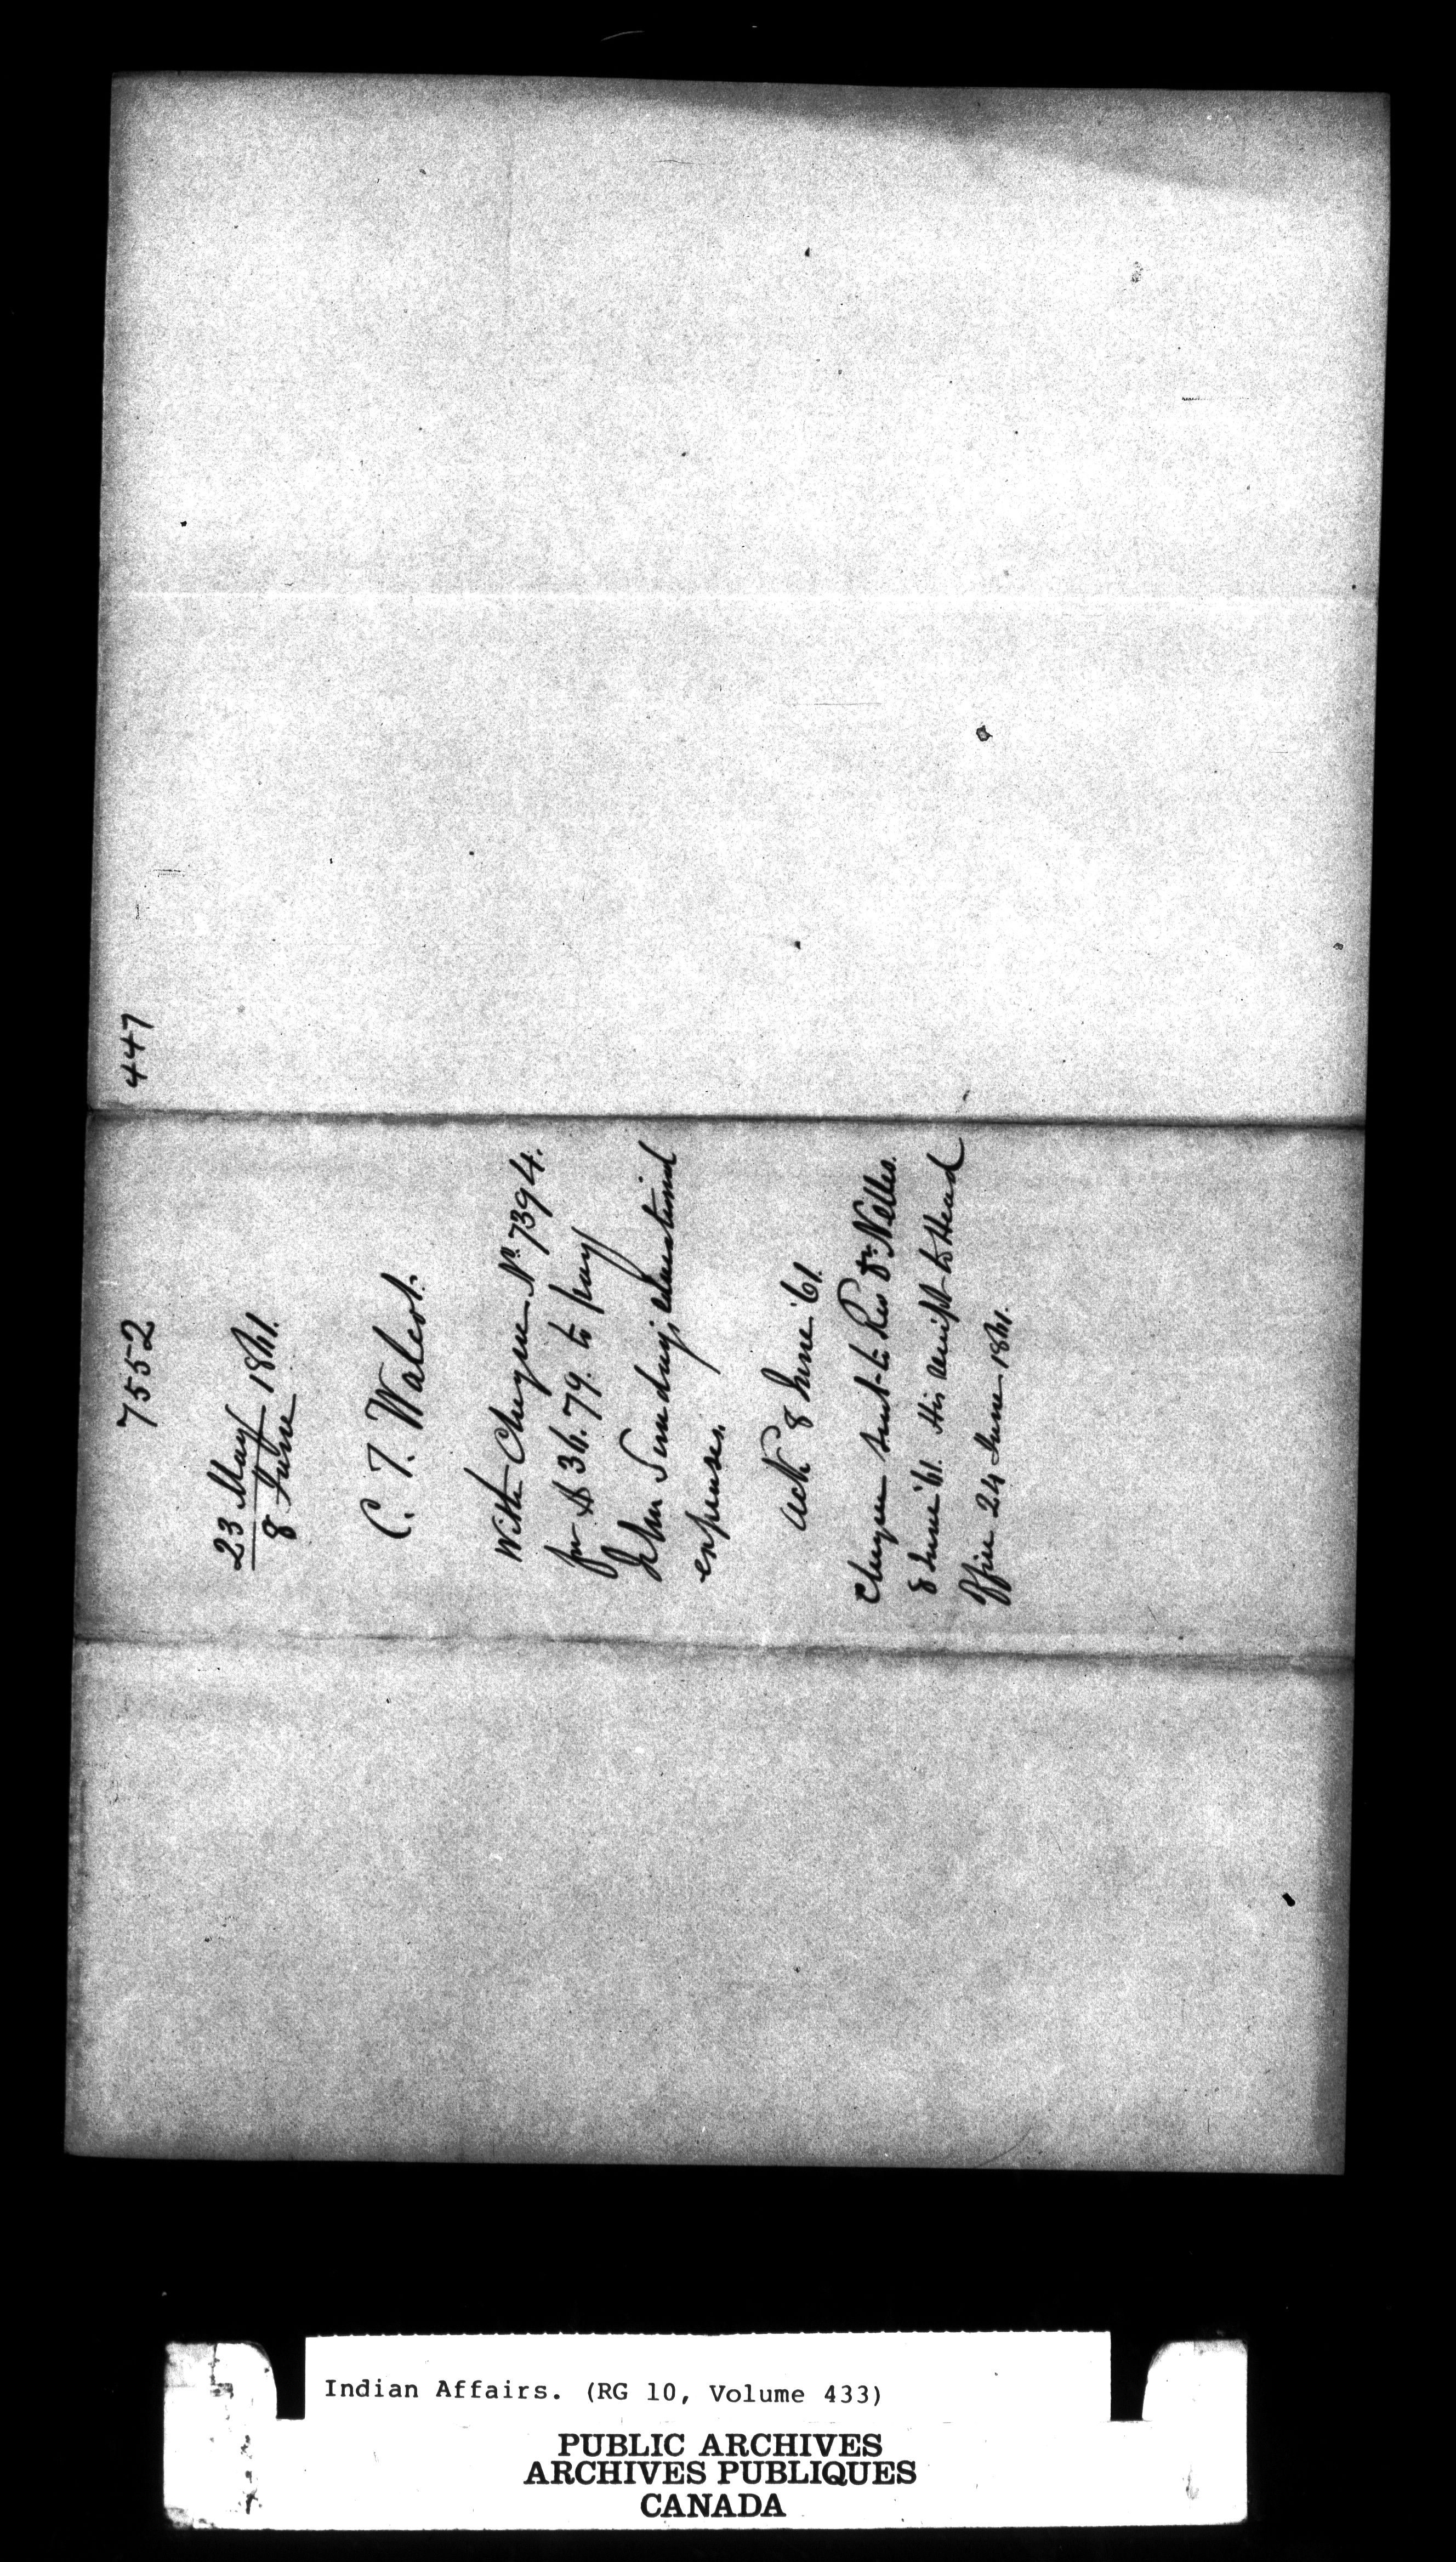 447
7552
23 May 1861.
8 June
C. T. Walcot.
With Cheque No. 7394.
for $36.79. to pay
John Sunday, educational
expenses.
Ack 8 June '61.
Cheque sent to Rev Dr. Nelles.
8 June '61. His receipt to Head
Office 24 June 1861.
Indian Affairs. (RG 10, Volume 433)
PUBLIC ARCHIVES
ARCHIVES PUBLIQUES
CANADA